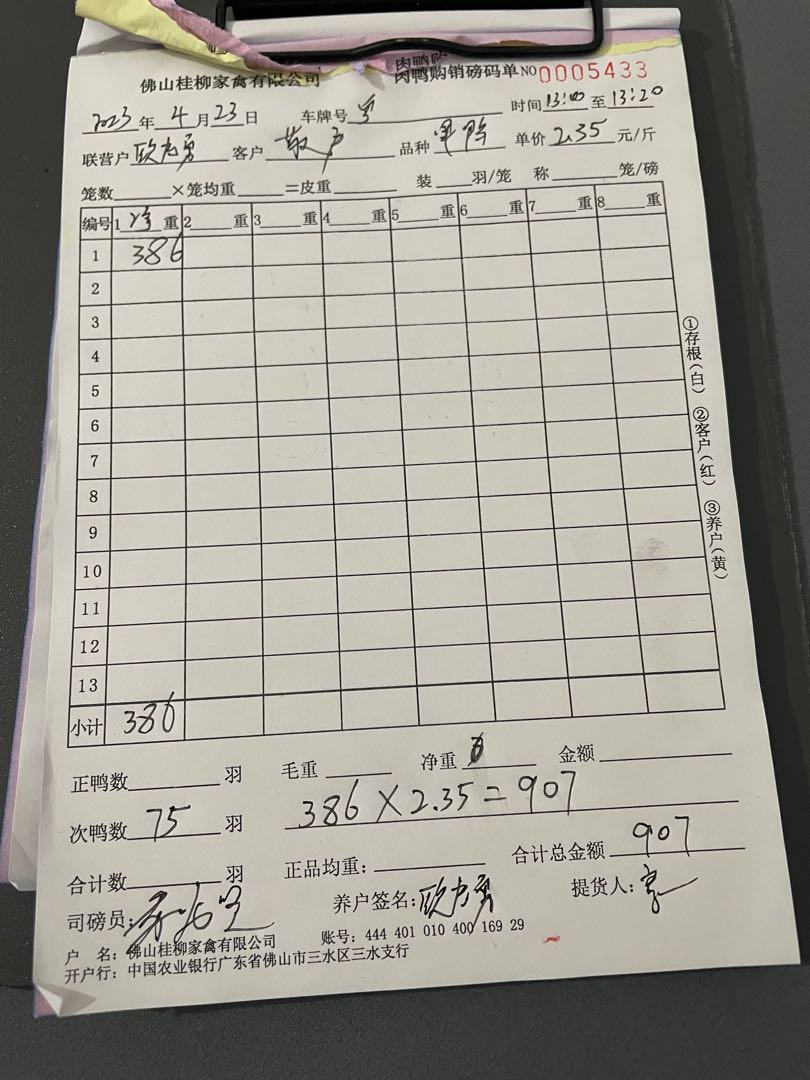 佛山桂柳家禽有限公司 肉鸭购销磅码单NO0005433
2023年4月23日 车牌号 时间13:00至13:20
联营户 欧志勇 客户 散户 品种 单价2.35元/斤
笼数×笼均重=皮重 装 羽/笼 称 笼/磅
编号 1净重 2重 3重 4重 5重 6重 7重 8重
1 386
2
3
4
5
6
7
8
9
10
11
12
13
小计 386
①存根(白) ②客户(红) ③养户(黄)
正鸭数 羽 毛重 净重 金额
次鸭数 75 羽 386×2.35=907
合计数 羽 正品均重: 合计总金额 907
司磅员: 养户签名: 欧志勇 提货人:
户 名: 佛山桂柳家禽有限公司 账号: 444 401 010 400 169 29
开户行: 中国农业银行广东省佛山市三水区三水支行